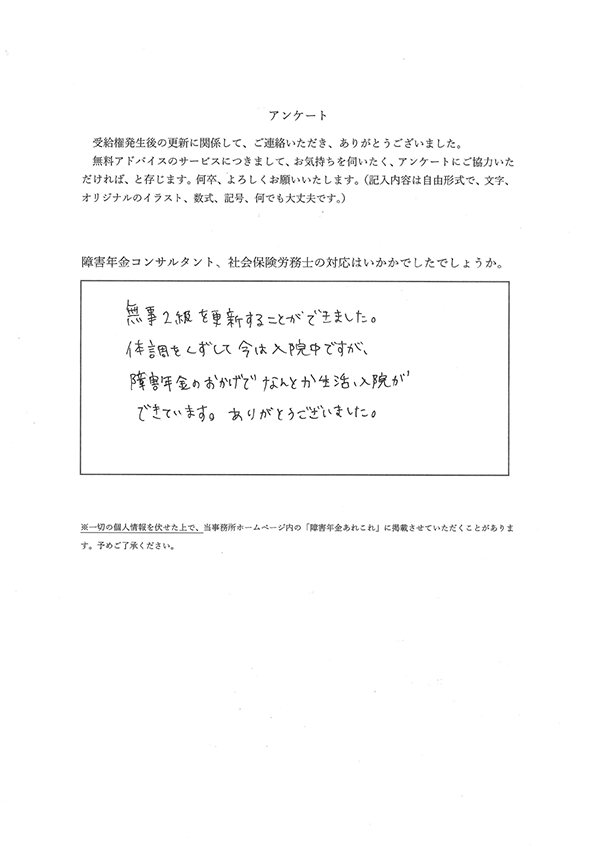 アンケート
受給権発生後の更新に関係して、ご連絡いただき、ありがとうございました。
無料アドバイスのサービスにつきまして、お気持ちを伺いたく、アンケートにご協力いた
だければ、と存じます。何卒、よろしくお願いいたします。（記入内容は自由形式で、文字、
オリジナルのイラスト、数式、記号、何でも大丈夫です。）
障害年金コンサルタント、社会保険労務士の対応はいかかでしたでしょうか。
無事2級を更新することができました。
体調をくずして今は入院中ですが、
障害年金のおかげでなんとか生活、入院が
できています。ありがとうございました。
※一切の個人情報を伏せた上で、当事務所ホームページ内の「障害年金あれこれ」に掲載させていただくことがありま
す。予めご了承ください。